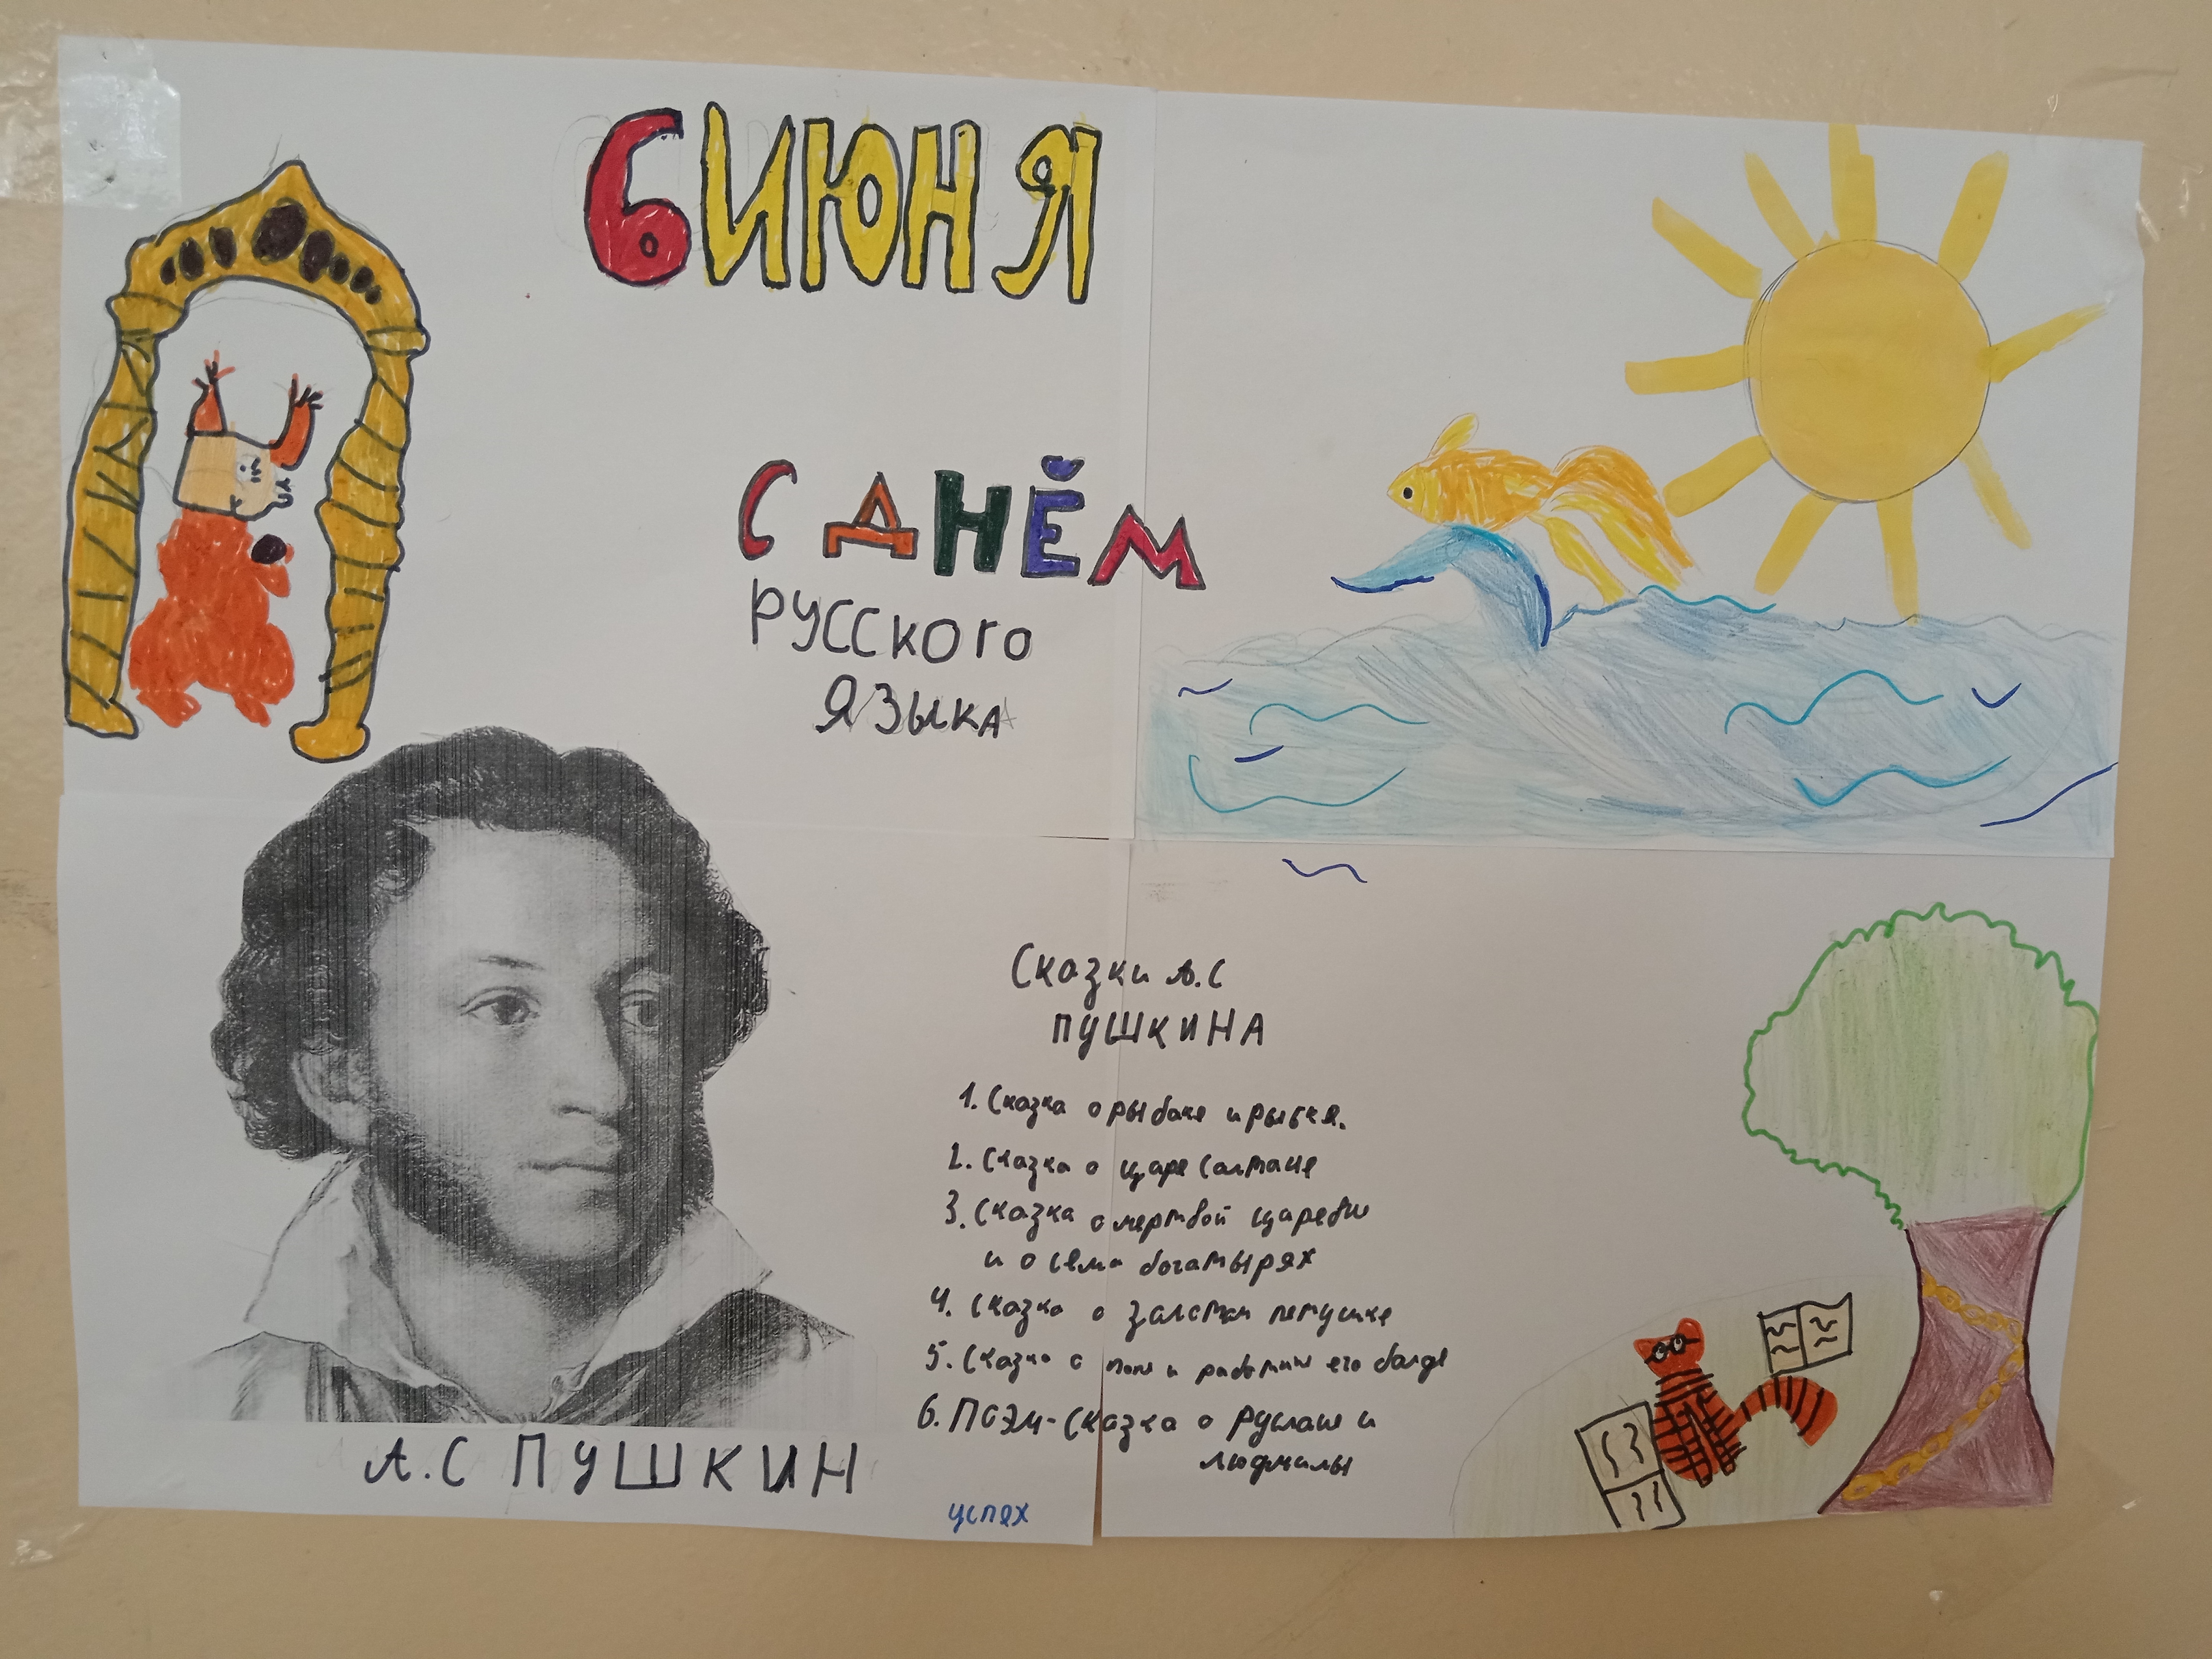 6 ИЮНЯ
С ДНЁМ
РУССКОГО
ЯЗЫКА
Сказки А.С
ПУШКИНА
1. Сказка о рыбаке и рыбке.
2. Сказка о царе Салтане
3. Сказка о мертвой
и о семи богатырях
4. Сказка о петушке
5. Сказка о и его балде
6. ПОЭМ-Сказка о и
людмилы
А.С ПУШКИН
успех